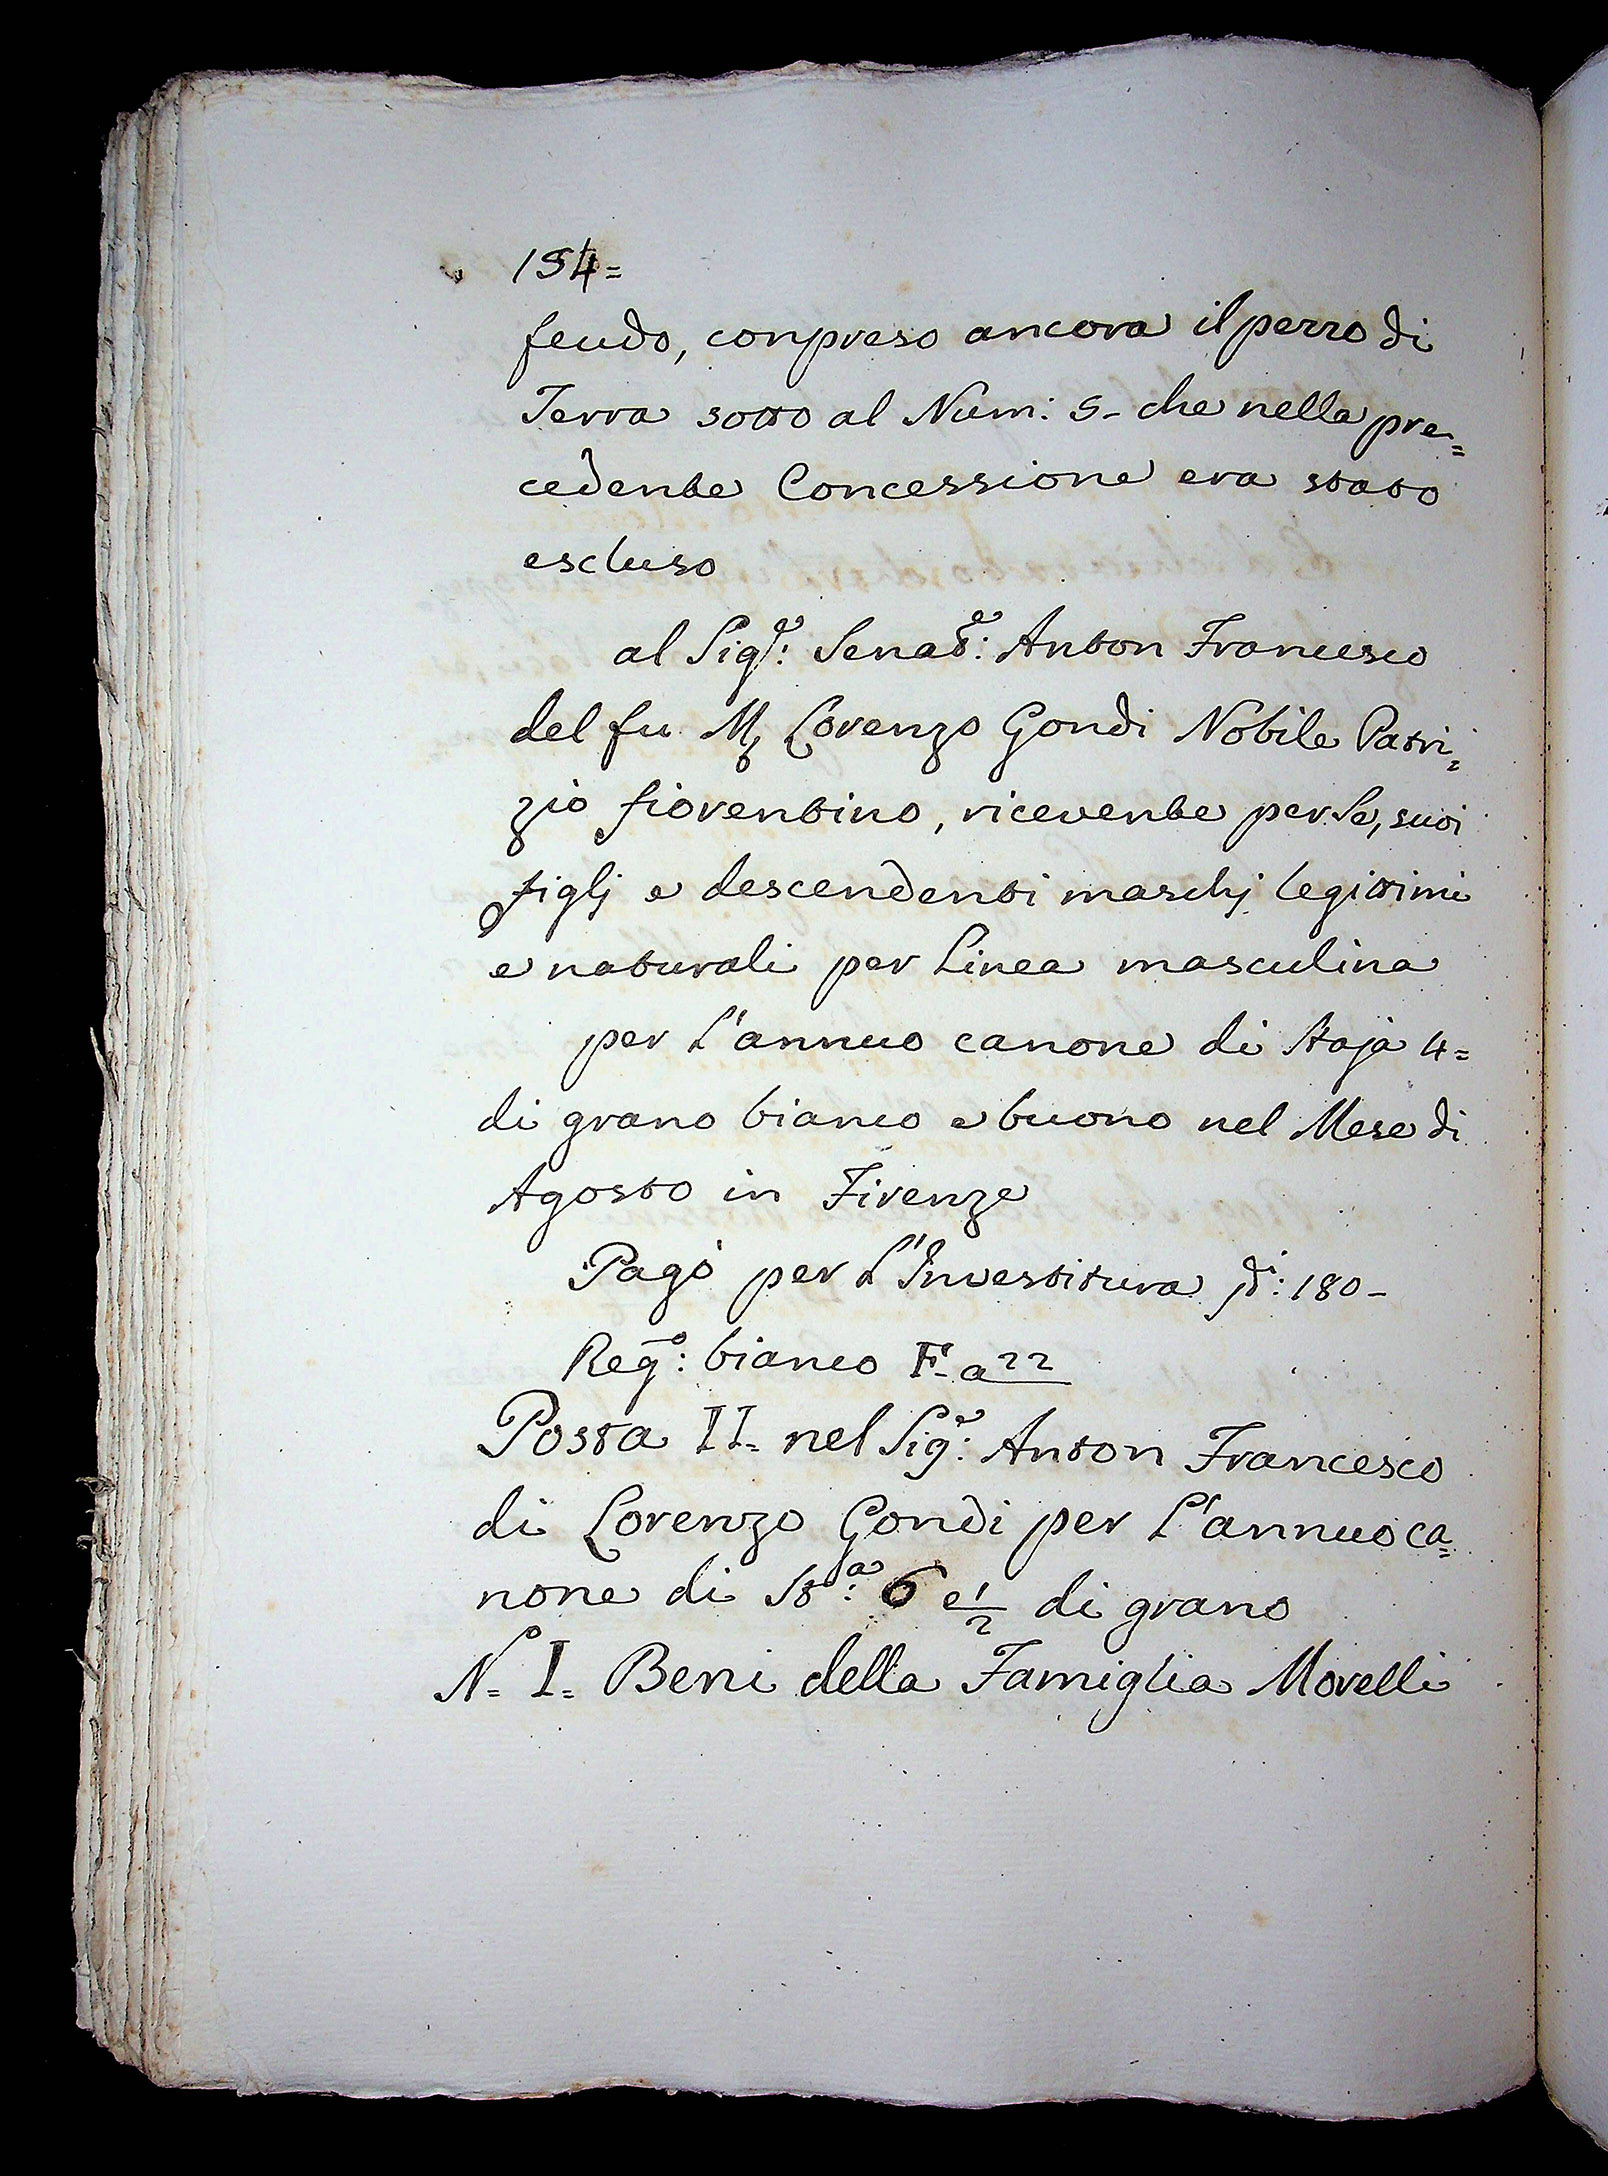 154=
feudo, conpreso ancora il pezzo di
Terra sotto al Num: 5- che nella pre=
cedente Concessione era stato
escluso
al Sig.e: Senat.e: Anton Francesco
del fu M Lorenzo Gondi Nobile Patri=
zio fiorentino, ricevente per Se, suoi
figlj e descendenti maschj legittimi
e naturali per Linea masculina
per L'annuo canone di Staja 4=
di grano bianco e buono nel Mese di
Agosto in Firenze
Pagò per L'Investitura 180-
Reg.o: bianco F. a 22
Posta II= nel Sig.e: Anton Francesco
di Lorenzo Gondi per L'annuo ca=
none di St.a: 6 e 1/2 di grano
N.o= I= Beni della Famiglia Morelli